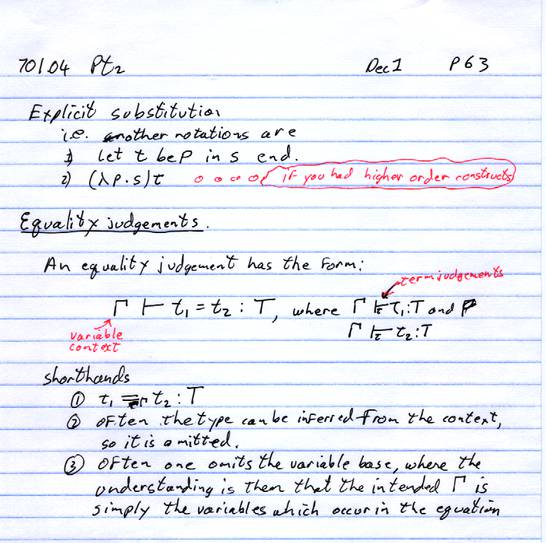 701.04 Pt2 Dec 1 P63
Explicit substitution
i.e. another notations are
1) let t be P in s end.
2) (λP.s)t if you had higher order constructs
Equality judgements.
An equality judgement has the form:
term judgements
Γ ⊢ t₁ = t₂ : T, where Γ ⊢Σ t₁:T and
variable
context
Γ ⊢Σ t₂:T
shorthands
① t₁ =Γ t₂ : T
② often the type can be inferred from the context,
so it is omitted.
③ often one omits the variable base, where the
understanding is then that the intended Γ is
simply the variables which occur in the equation